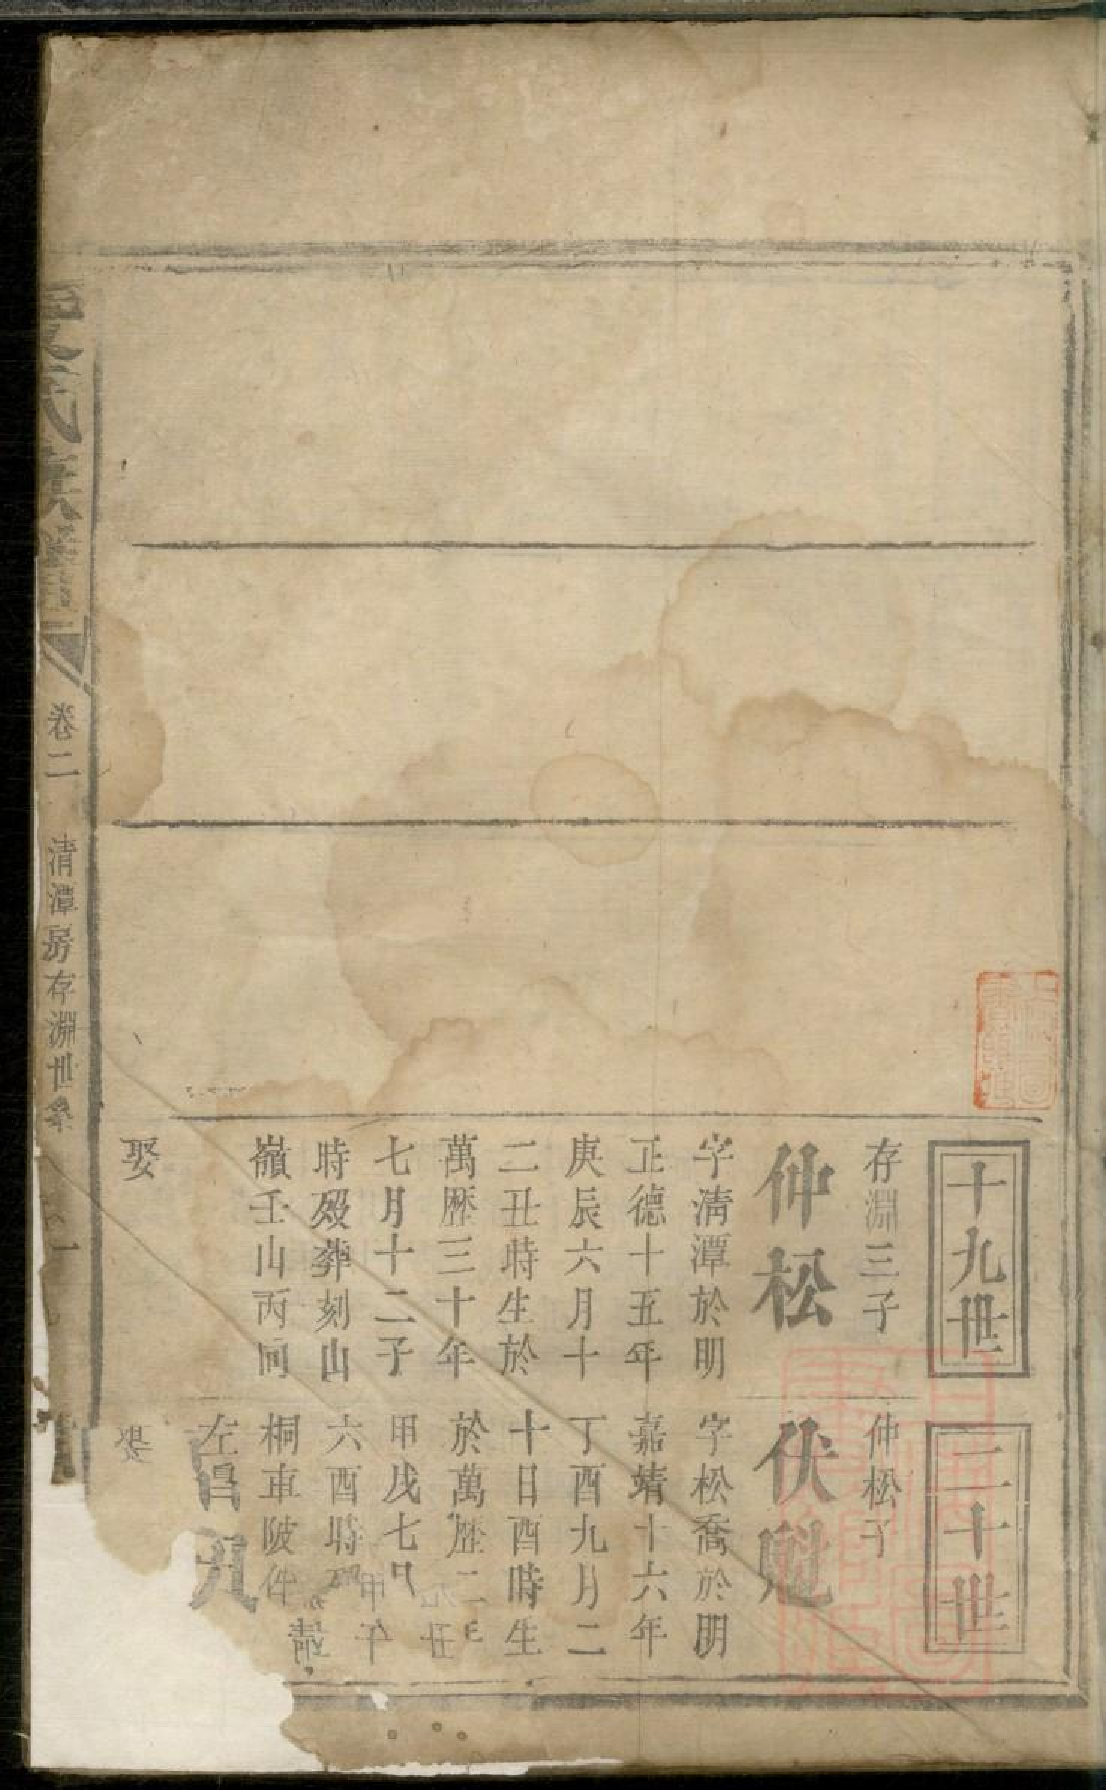 十九世
存淵三子
仲松
字清潭於明
正德十五年
庚辰六月十
二丑時生於
萬歷三十年
七月十二子
時殁葬刻山
嶺壬山丙向
娶
二十世
仲松子
伏魁
字松喬於明
嘉靖十六年
丁酉九月二
十日酉時生
於萬歷二年
甲戌七
六酉時
桐車陂
左昌
氏族譜
卷二
清潭房存淵世系